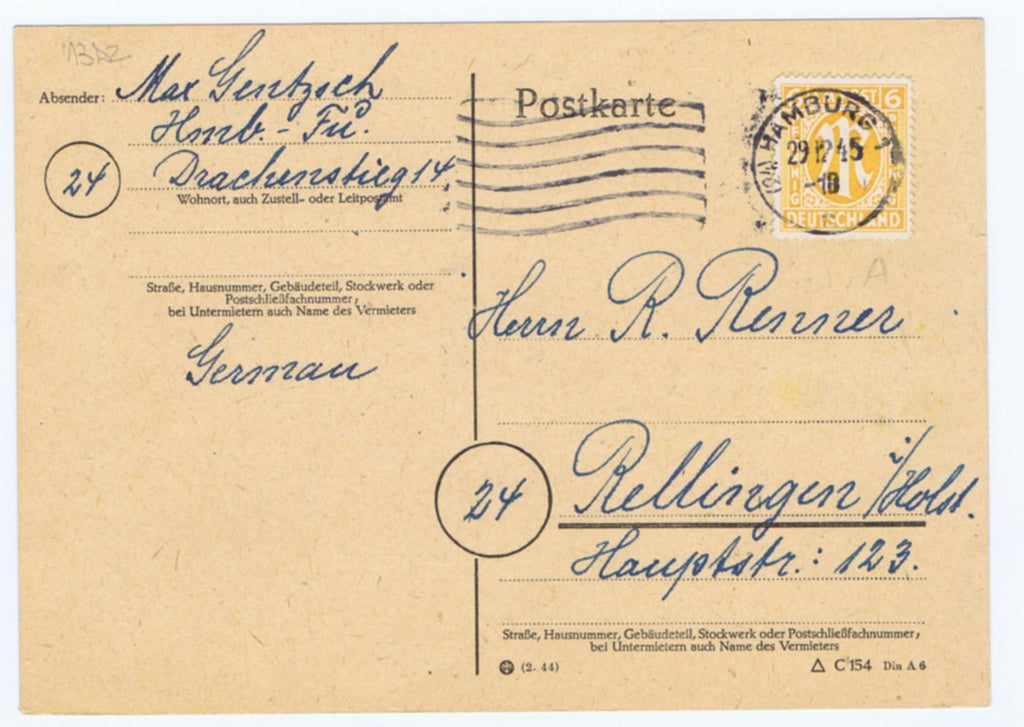 13AZ
Absender: Max Gentzsch
Hmb.-Fu.
24
Drachenstieg 14
Wohnort, auch Zustell- oder Leitpostamt
Straße, Hausnummer, Gebäudeteil, Stockwerk oder
Postschließfachnummer;
bei Untermietern auch Name des Vermieters
German
Postkarte
6
PFENNIG
DEUTSCHLAND
HAMBURG 1
29.12.45
-18
A
Herrn R. Renner
24
Rellingen i/Holst.
Hauptstr.: 123.
Straße, Hausnummer, Gebäudeteil, Stockwerk oder Postschließfachnummer;
bei Untermietern auch Name des Vermieters
(2. 44)
C 154 Din A 6